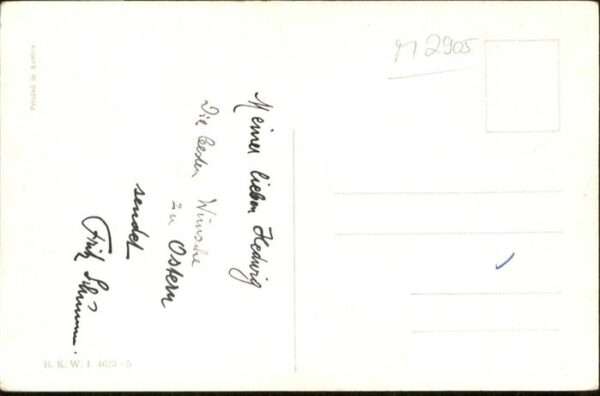 M 2905
Meiner lieben Hedwig
Die besten Wünsche
zu Ostern
sendet
Fritz
Printed in Austria
B. K. W. I. 4623-5